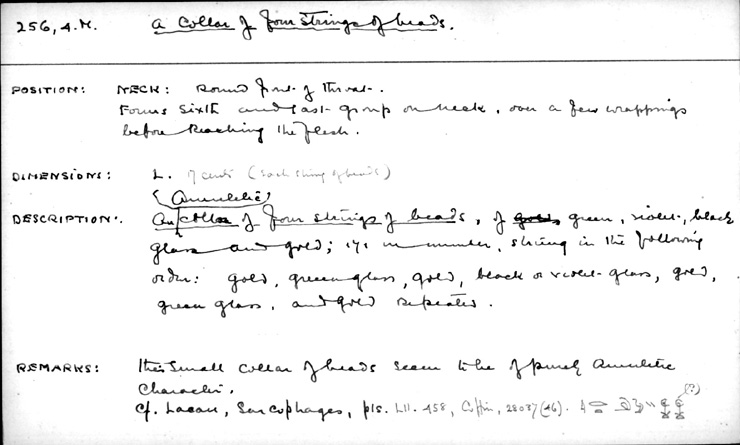 256, 4.H. A Collar of four strings of beads.
POSITION: NECK: Round front of throat.
Forms sixth and last group on neck, over a few wrappings
before reaching the flesh.
DIMENSIONS: L. 7 cents (each string of beads)
(Amuletic)
DESCRIPTION: A collar of four strings of beads, of green, violet, black
glass and gold; 171 in number, strung in the following
order: gold, green glass, gold, black or violet glass, gold,
green glass, and gold repeated.
REMARKS: This small collar of beads seem to be of purely Amuletic
Character.
(?)
Cf. Lacau, Sarcophages, pls. LII. 458, Coffin, 28037 (46).